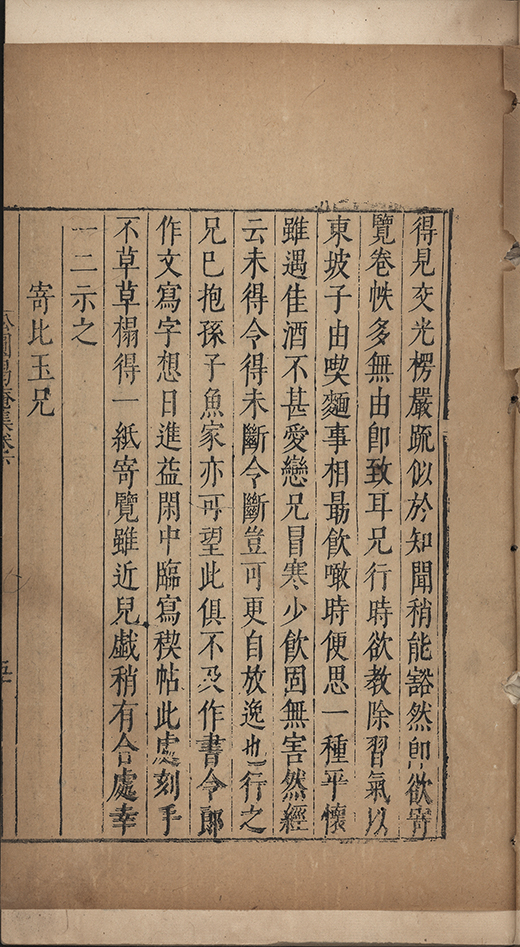 得見交光楞嚴疏似於知聞稍能豁然卽欲寄
覽卷帙多無由卽致耳兄行時欲教除習氣以
東坡子由喫麵事相勗飲噉時便思一種平懷
雖遇佳酒不甚愛戀兄冒寒少飲固無害然經
云未得令得未斷令斷豈可更自放逸也行之
兄已抱孫子魚家亦可望此俱不及作書令郎
作文寫字想日進益閑中臨寫稧帖此處刻手
不草草榻得一紙寄覽雖近兒戲稍有合處幸
一二示之
寄比玉兄